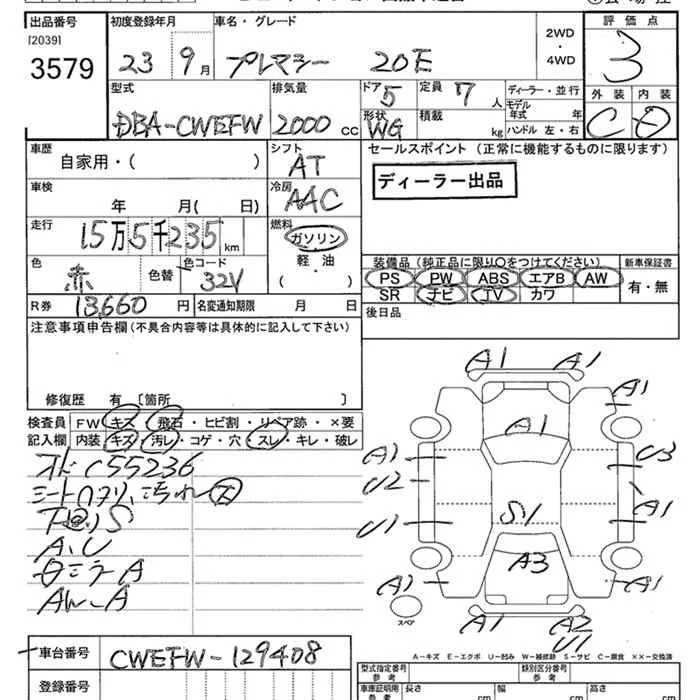 出品番号 初度登録年月 車名・グレード 評価点
[2039] 2WD
3579 23 9月 プレマシー 20E ・ 3
4WD
型式 排気量 ドア 5 定員 7人 ディーラー・並行 外装 内装
DBA-CWEFW 2000cc 形状 WG 積載 kg モデル年式 年 C D
ハンドル 左・右
車歴 シフト セールスポイント(正常に機能するものに限ります)
自家用・( ) AT
車検 冷房 ディーラー出品
年 月( 日) AAC
走行 燃料
15万5千235km ガソリン
色 色替 色コード 軽・油 装備品(純正品に限り○をつけてください) 新車保証書
赤 32V ( ) PS PW ABS エアB AW 有・無
SR ナビ TV カワ
R券 13,660円 名変通知期限 月 日 後日品
注意事項申告欄(不具合内容等は具体的に記入して下さい)
修復歴 有 [箇所 ]
検査員 FW キズ・飛石・ヒビ割・リペア跡・×要
記入欄 内装 キズ・汚レ・コゲ・穴・スレ・キレ・破レ
C55236
シート
S
A、U
ミラーA
AW-A
A1 A1
A1
A1
A1 U3
U2
A1
U1 S1
A3
A1 A1
スペア A1 A2
U1
A-キズ E-エクボ U-凹み W-補修跡 S-サビ C-腐食 ××-交換済
車台番号 CWEFW-129408
型式指定番号 参考 類別区分番号 参考
登録番号 車庫証明用 参考 長さ cm 幅 cm 高さ cm